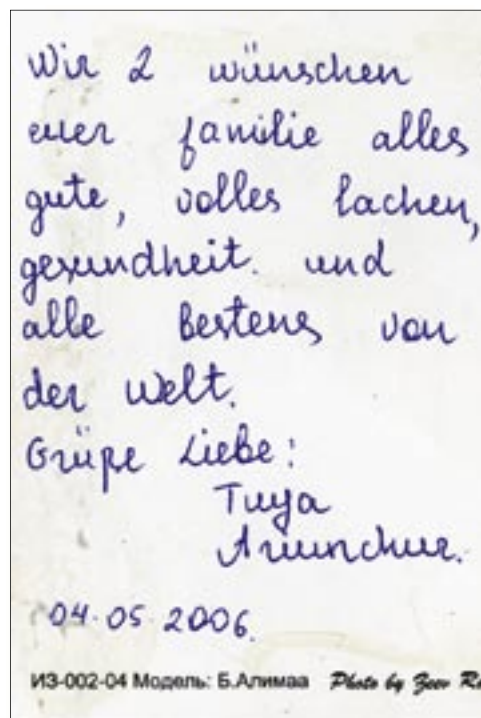 Wir 2 wünschen
euer familie alles
gute, volles lachen,
gesundheit. und
alle bestens von
der welt.
Grüße Liebe:
Tuya
04.05.2006.
ИЗ-002-04 Модель: Б.Алимаа Photo by Zeev